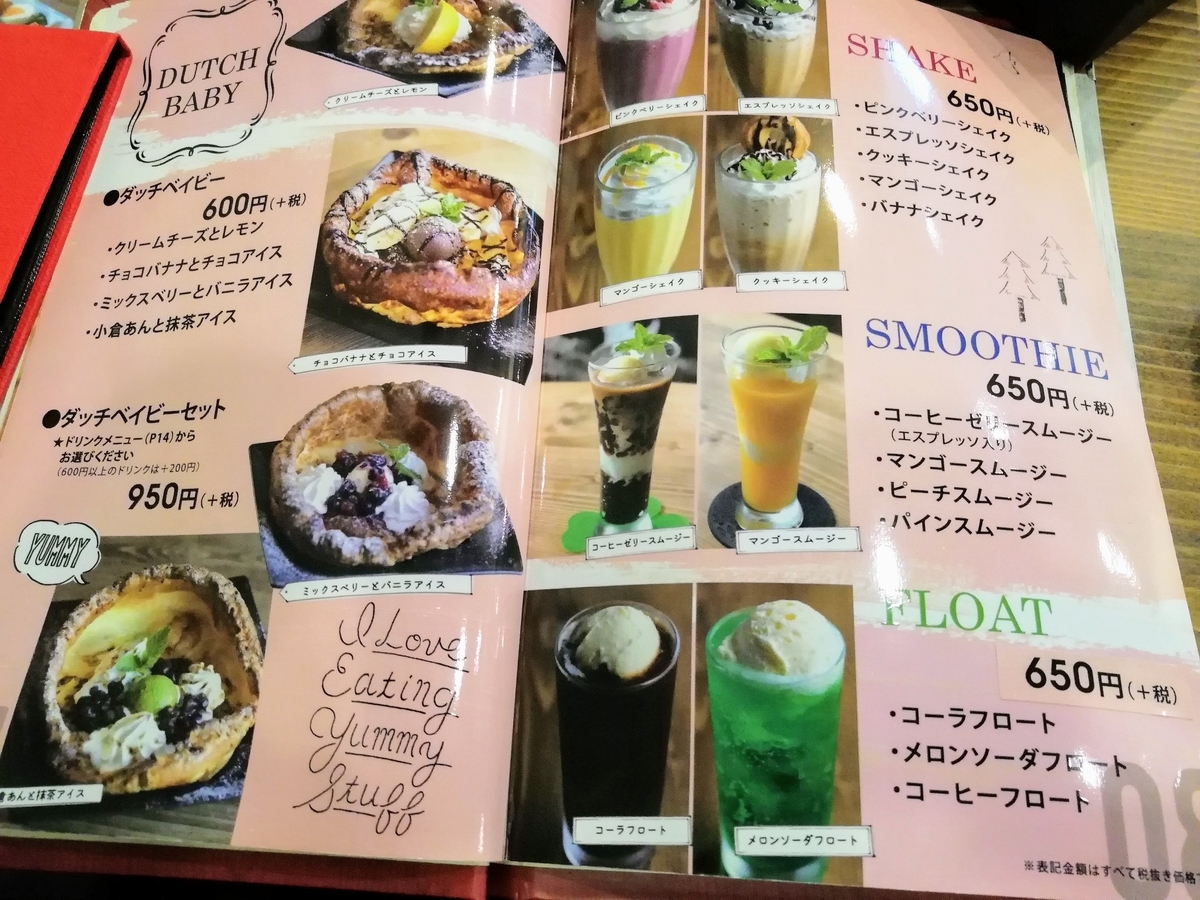 DUTCH
BABY
クリームチーズとレモン
●ダッチベイビー
600円(+税)
・クリームチーズとレモン
・チョコバナナとチョコアイス
・ミックスベリーとバニラアイス
・小倉あんと抹茶アイス
チョコバナナとチョコアイス
●ダッチベイビーセット
★ドリンクメニュー(P14)から
お選びください
(600円以上のドリンクは+200円)
950円(+税)
YUMMY
ミックスベリーとバニラアイス
倉あんと抹茶アイス
I Love
Eating
Yummy
Stuff
ピンクベリーシェイク
エスプレッソシェイク
マンゴーシェイク
クッキーシェイク
SHAKE
650円(+税)
・ピンクベリーシェイク
・エスプレッソシェイク
・クッキーシェイク
・マンゴーシェイク
・バナナシェイク
コーヒーゼリースムージー
マンゴースムージー
SMOOTHIE
650円(+税)
・コーヒーゼリースムージー
(エスプレッソ入り)
・マンゴースムージー
・ピーチスムージー
・パインスムージー
コーラフロート
メロンソーダフロート
FLOAT
650円(+税)
・コーラフロート
・メロンソーダフロート
・コーヒーフロート
※表記金額はすべて税抜き価格